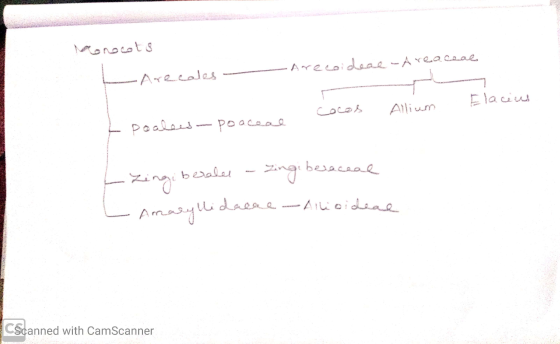 Monocots
Arecales — Arecoideae - Areaceae
Cocos Allium Elacius
Poales — poaceae
Zingiberales - Zingiberaceae
Amaryllidaeae — Allioideae
CS Scanned with CamScanner